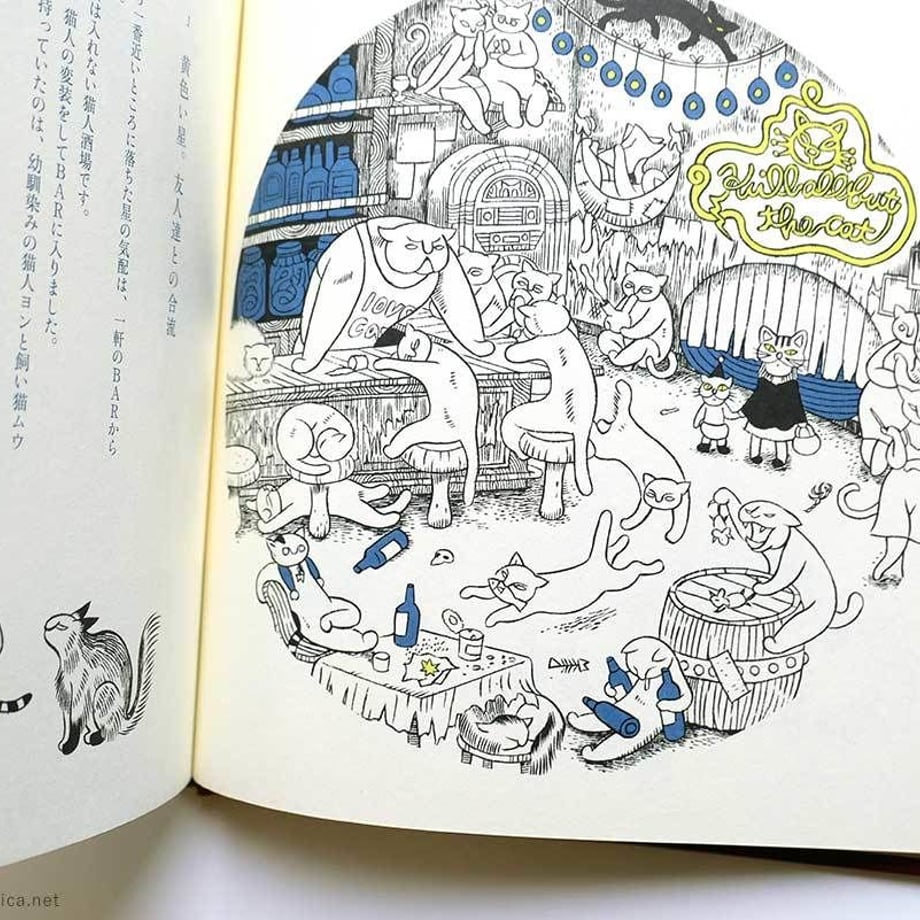 1 黄色い星。友人達との合流
一番近いところに落ちた星の気配は、一軒のBARから
は入れない猫人酒場です。
猫人の変装をしてBARに入りました。
持っていたのは、幼馴染みの猫人ヨンと飼い猫ムウ
the cat
I LOVE
ica.net